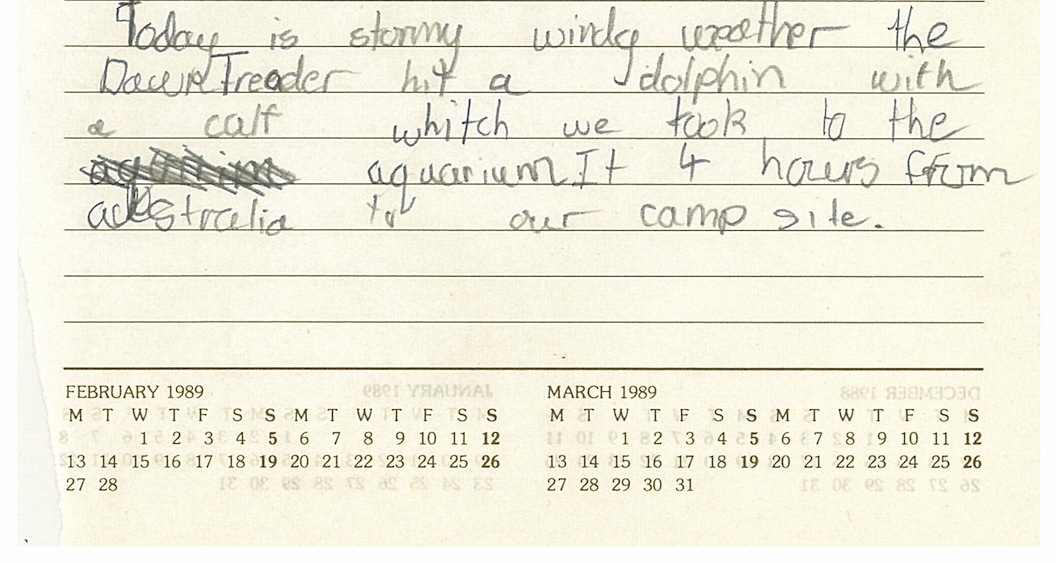 Today is stormy windy weather the
Dawn Treader hit a dolphin with
a calf whitch we took to the
aquarium. It 4 hours from
australia to our camp site.
FEBRUARY 1989
M T W T F S S M T W T F S S
1 2 3 4 5 6 7 8 9 10 11 12
13 14 15 16 17 18 19 20 21 22 23 24 25 26
27 28
MARCH 1989
M T W T F S S M T W T F S S
1 2 3 4 5 6 7 8 9 10 11 12
13 14 15 16 17 18 19 20 21 22 23 24 25 26
27 28 29 30 31
JANUARY 1989
DECEMBER 1988